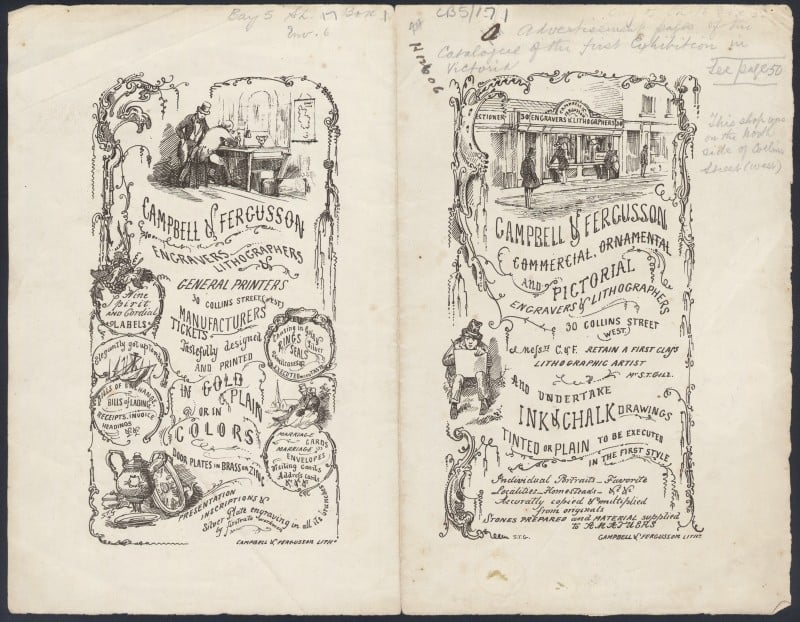 Bay 5 Sh. 17 Box 1
Env. 6
CB5/17/1
H12606
Advertisement pages of the
Catalogue of the first Exhibition in
Victoria
See page 50
This shop was
on the North
side of Collins
Street (west)
CAMPBELL & FERGUSSON
ENGRAVERS
LITHOGRAPHERS
&
GENERAL PRINTERS
30 COLLINS STREET (WEST)
MANUFACTURERS
TICKETS
Tastefully designed
AND PRINTED
IN GOLD
& PLAIN
OR IN
COLORS
DOOR PLATES IN BRASS OR ZINC
PRESENTATION &
INSCRIPTIONS
Silver Plate engraving in all its branches
Wine
Spirit
AND Cordial
LABELS
Elegantly got up
BILLS OF EXCHANGE
BILLS OF LADING
RECEIPTS, INVOICE
HEADINGS
&c &c
Chasing in Gold
& Silver
RINGS
SEALS
EXECUTED
MARRIAGE
CARDS
MARRIAGE
ENVELOPES
Visiting Cards
Address cards
&c &c &c
S.T.G.
CAMPBELL & FERGUSSON LITHo
CAMPBELL & FERGUSSON
30 ENGRAVERS & LITHOGRAPHERS 30
CAMPBELL & FERGUSSON
COMMERCIAL, ORNAMENTAL
AND PICTORIAL
ENGRAVERS & LITHOGRAPHERS
30 COLLINS STREET
(WEST)
Messrs C. & F. RETAIN A FIRST CLASS
LITHOGRAPHIC ARTIST
Mr S.T. GILL
AND UNDERTAKE
INK & CHALK DRAWINGS
TINTED OR PLAIN TO BE EXECUTED
IN THE FIRST STYLE
Individual Portraits - Favorite
Localities - Homesteads - &c &c
Accurately copied & multiplied
from originals
STONES PREPARED and MATERIAL supplied
to AMATEURS
S.T.G.
CAMPBELL & FERGUSSON LITHo